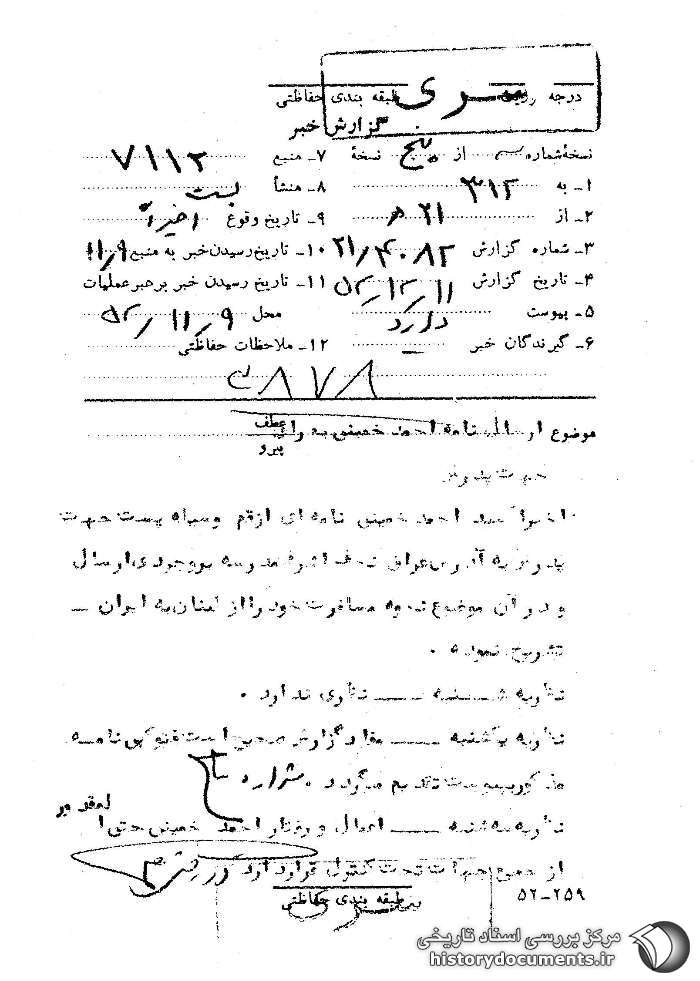 سری
درجه طبقه بندی حفاظتی
گزارش خبر
نسخهٔ شماره از پنج نسخهٔ
۷ـ منبع ۷۱۱۲
۱ـ به ۳۱۲
۸ـ منشأ پست
۲ـ از ۲۱ ه
۹ـ تاریخ وقوع اخیراً
۳ـ شماره گزارش ۲۱/۴۰۸۲
۱۰ـ تاریخ رسیدن خبر به منبع ۱۱/۹
۴ـ تاریخ گزارش ۵۲/۱۲/۱۱
۱۱ـ تاریخ رسیدن خبر برهبر عملیات
۵ـ پیوست دارد
محل ۵۲/۱۱/۹
۶ـ گیرندگان خبر ـ
۱۲ـ ملاحظات حفاظتی
۸۷۸
موضوع ارسال نامه احمد خمینی به عراق
عطف
پیرو
جهت پدرش
اخیراً سید احمد خمینی نامه ای از قم وسیله پست جهت
پدرش به آدرس عراق نجف اشرف مدرسه بروجردی ارسال
و در آن موضوع نحوه مسافرت خود را از لبنان به ایران ـ
تشریح نموده .
نظریه شنبه ـــ نظری ندارد .
نظریه یکشنبه ـــ مفاد گزارش صحیح است فتوکپی نامه
مذکور بپیوست تقدیم میگردد . شراره
نظریه سه شنبه ـــ اعمال و رفتار احمد خمینی حتی ا
از جمیع جهات تحت کنترل قرار دارد
طبقه بندی حفاظتی
سری
۵۲-۲۵۹
مرکز بررسی اسناد تاریخی
historydocuments.ir